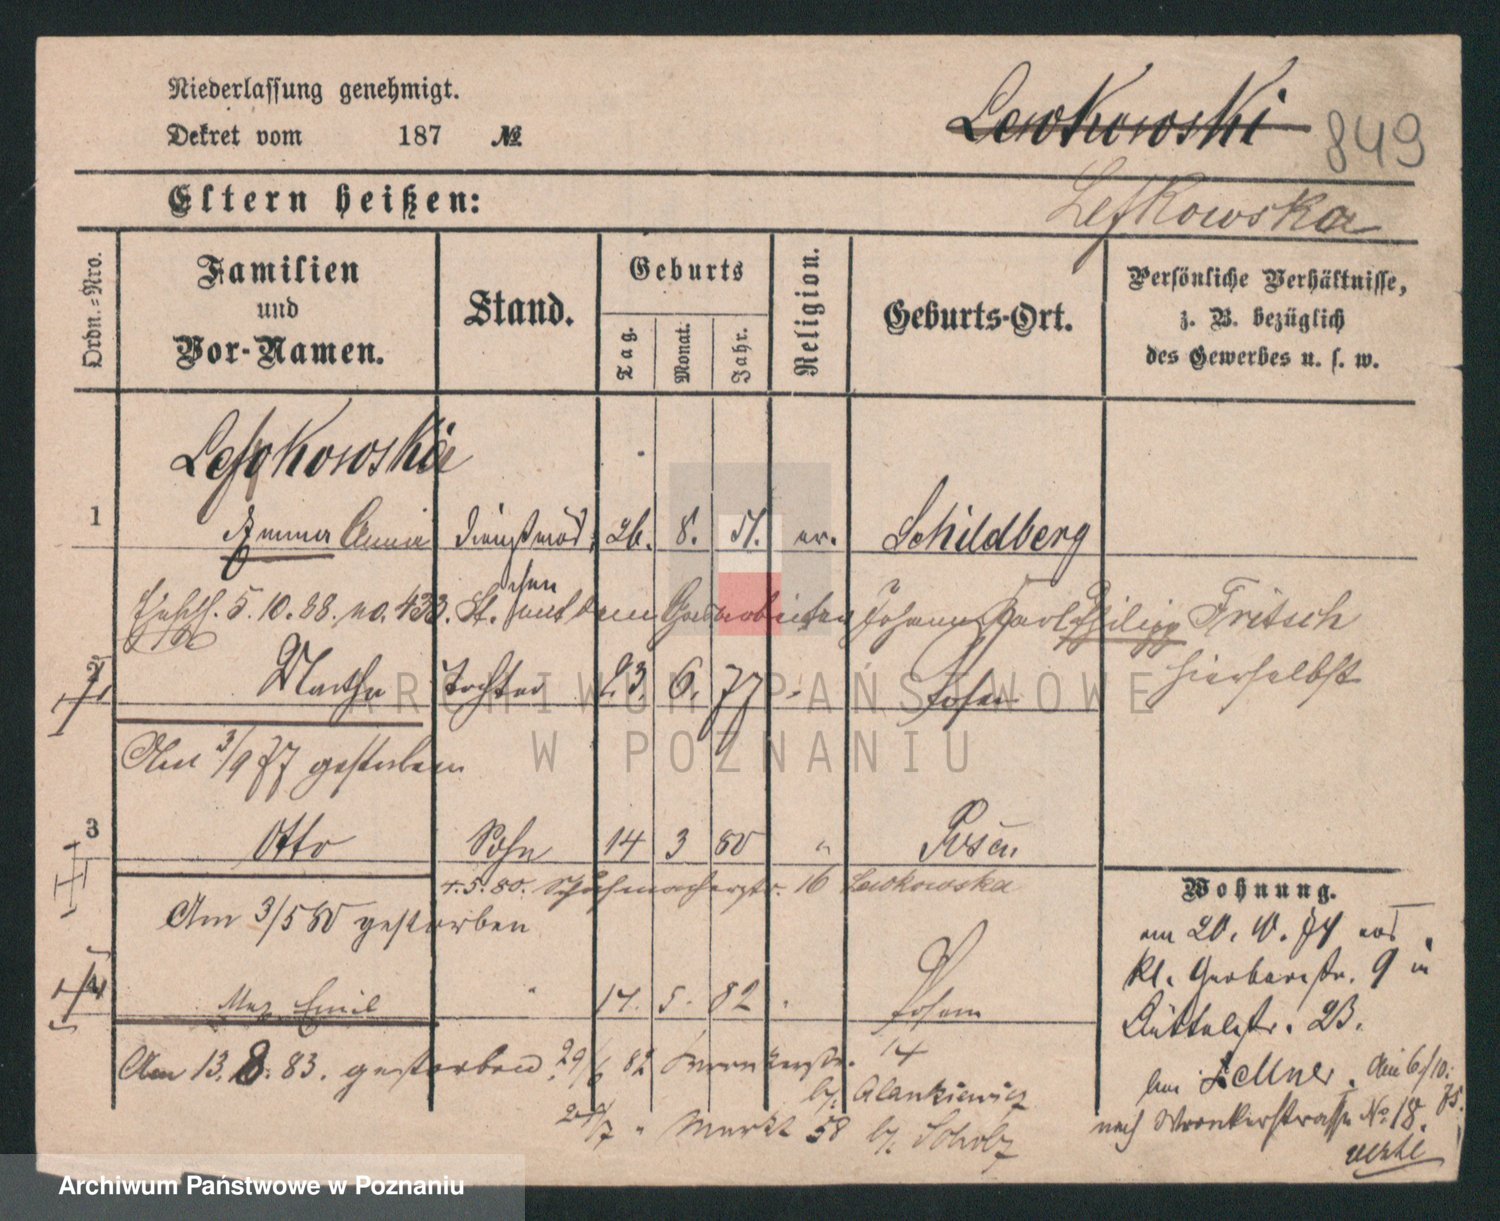 Niederlassung genehmigt.
Dekret vom 187 №
Lewkowski 849
Eltern heißen:
Lefkowska
Ordn.=Nro.
Familien
und
Vor-Namen.
Stand.
Geburts
Tag.
Monat.
Jahr.
Religion.
Geburts-Ort.
Persönliche Verhältnisse,
z. B. bezüglich
des Gewerbes u. s. w.
1 Emma Anna Dienstmäd. 26. 8. 51. ev. Schildberg
5.10.88. no. 433. St. dem Johann Karl Philipp Fritsch
hierselbst
2 Martha Tochter 23. 6. 77 " Posen
Am 3/9 77 gestorben
3 Otto Sohn 14 3 80 " Posen.
4.5.80. Schuhmacherstr. 16 Lewkowska
Am 3/5 80 gestorben
4 Max Emil " 17. 5. 82 " Posen
Am 13. 8. 83. gestorben. 29/6 82 Wronkerstr. 14
b/. Alankiewicz
24/7 " Markt 58 b/. Scholz
Wohnung.
am 20. 10. 74 von
kl. Gerberstr. 9 in
Büttelstr. 23.
bei Zellner. den 6/10. 75.
nach Wronkerstrasse No 18.
ARCHIWUM PAŃSTWOWE
W POZNANIU
Archiwum Państwowe w Poznaniu